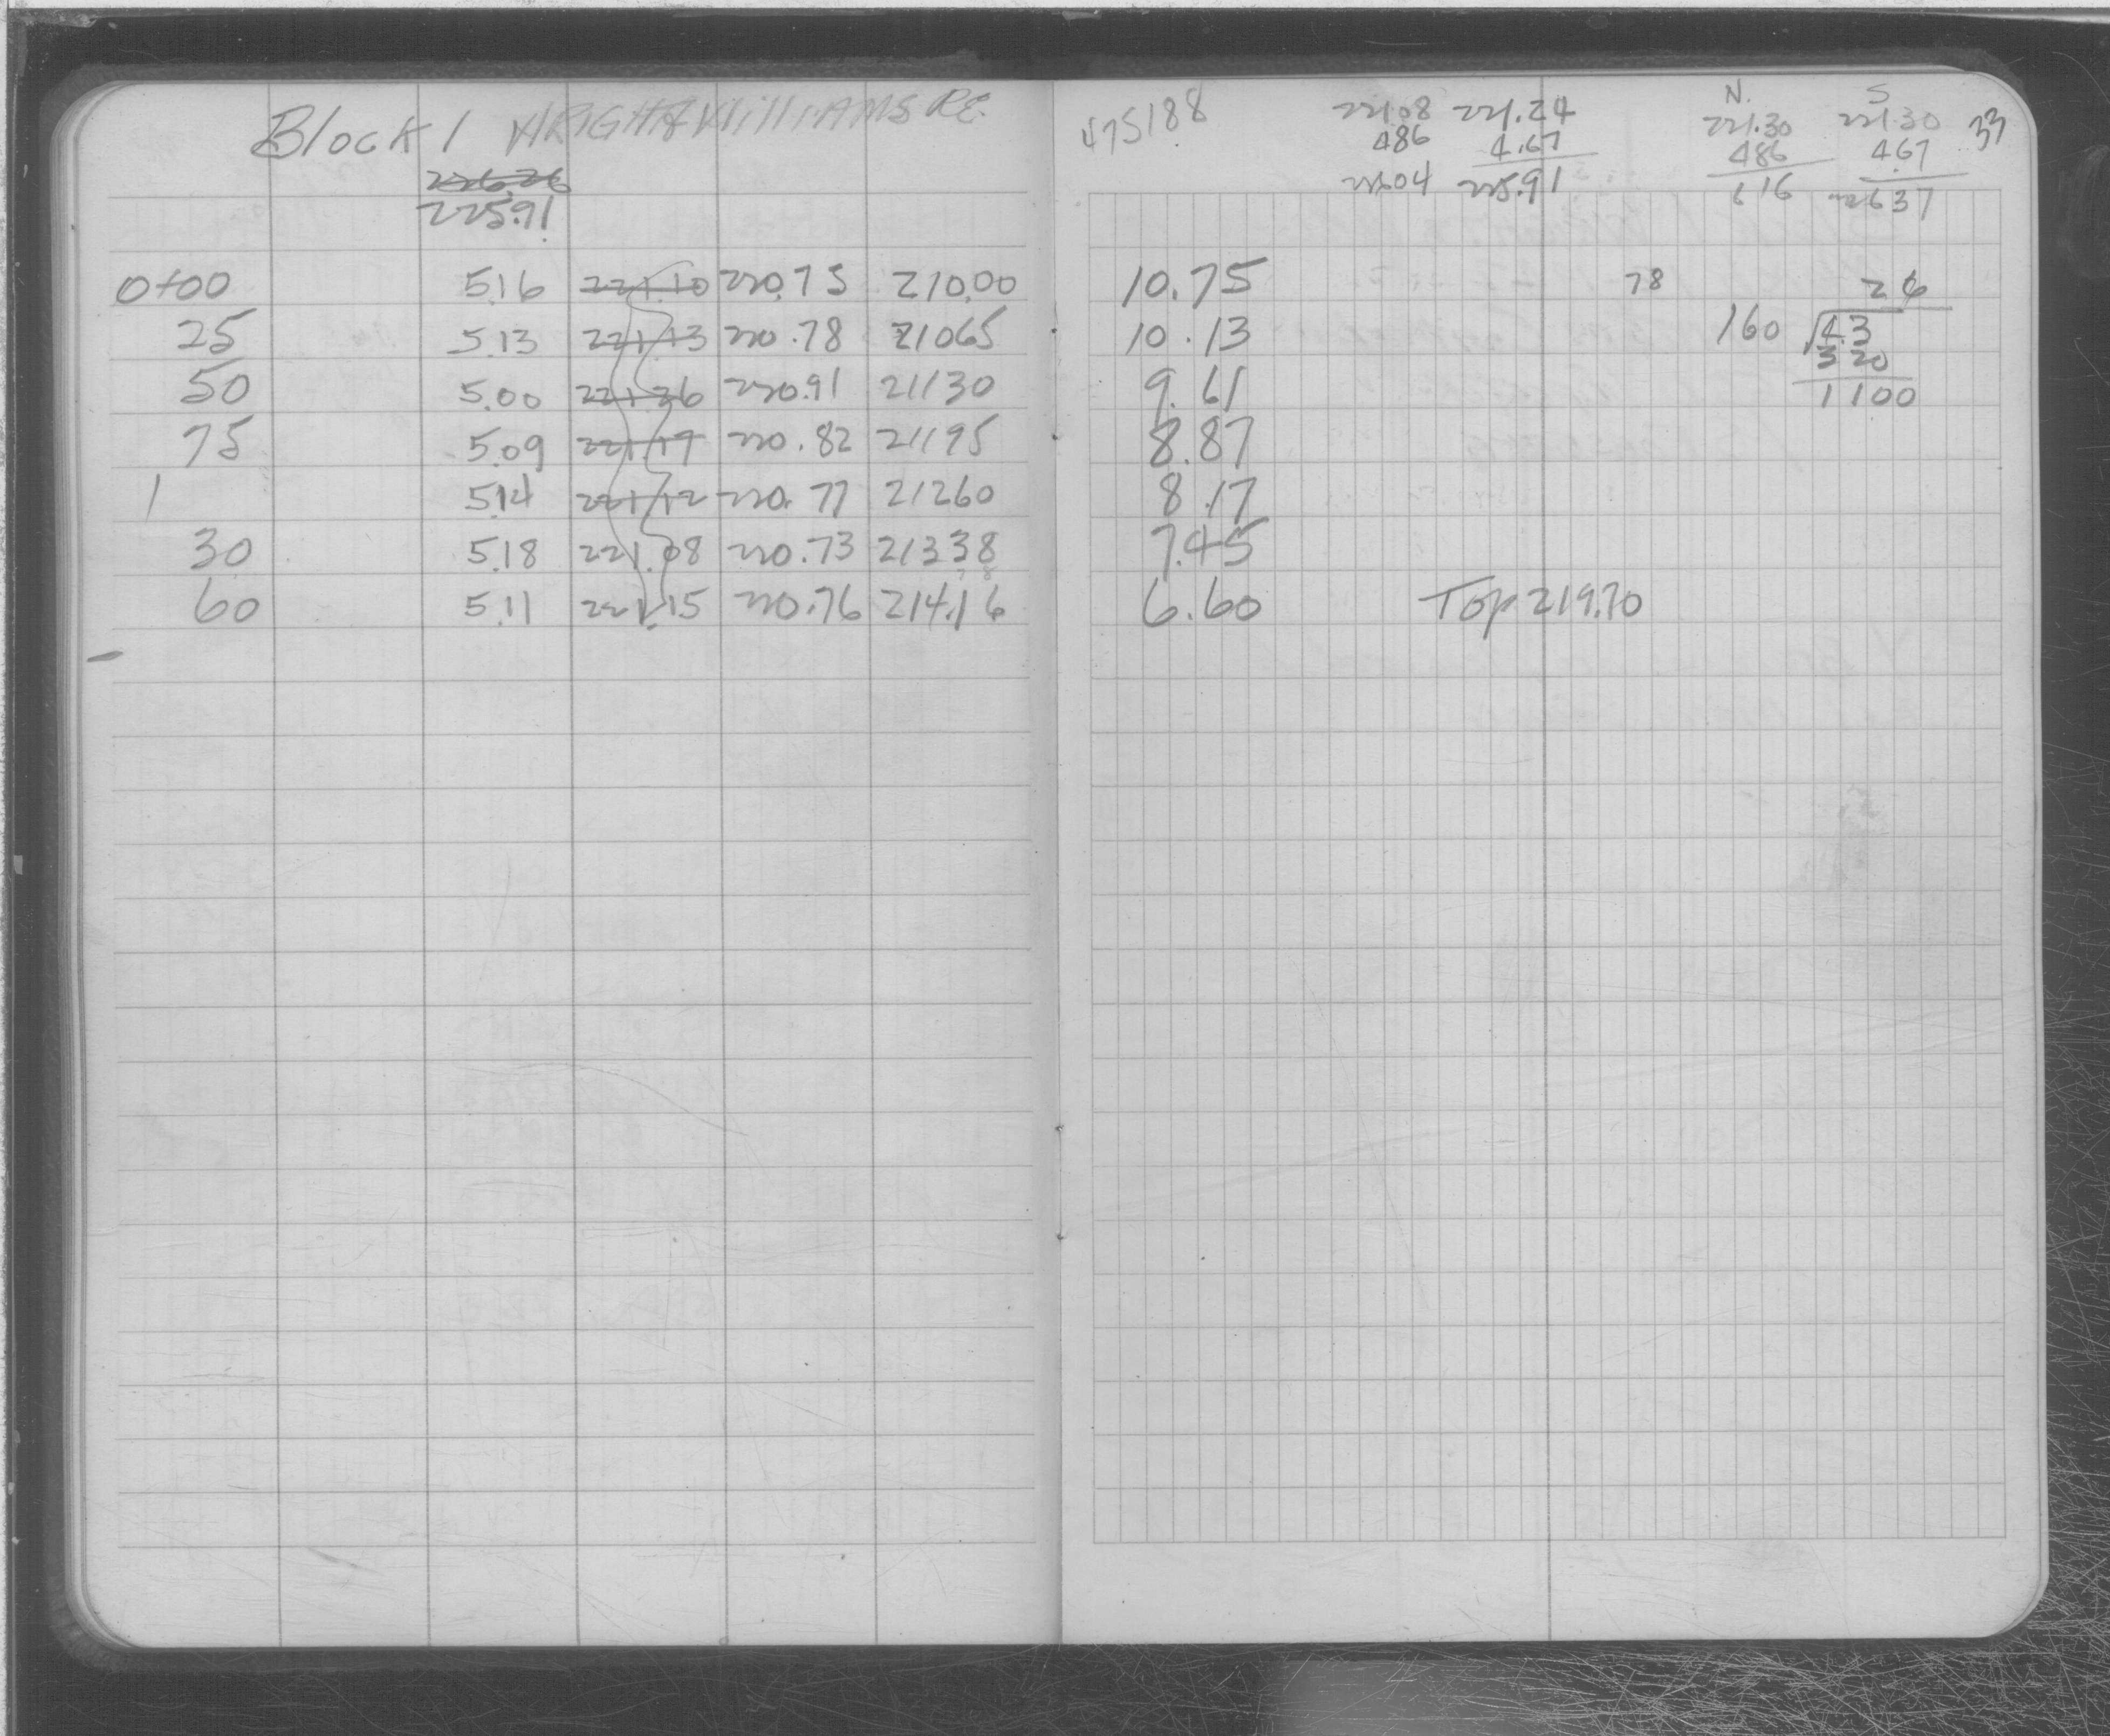 Block 1 WRIGHT & WilliAMS RE.
226.26
225.91
0+00 5.16 221.10 220.75 210.00
25 5.13 221.13 220.78 21065
50 5.00 221.26 220.91 21130
75 5.09 221.17 220.82 21195
1 5.14 221.12 220.77 21260
30 5.18 221.08 220.73 21338
60 5.11 221.15 220.76 214.16
475188 221.08 221.24 N. S 33
486 4.67 221.30 221.30
226.04 225.91 486 467
616 22637
10.75 78 26
10.13 160 43
320
9.61 1100
8.87
8.17
7.45
6.60 Top 219.70